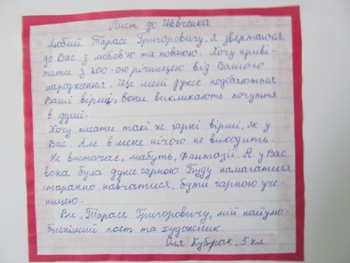 Лист до Шевченка
Любий Тарасе Григоровичу, я звертаюся
до Вас з любов'ю та повагою. Хочу приві-
тати з 200-ою річницею від Вашого
народження. Ще мені дуже подобаються
Ваші вірші, вони викликають почуття
в душі.
Хочу писати такі ж гарні вірші, як у
Вас. Але в мене нічого не виходить.
Не вистачає, мабуть, фантазії. А у Вас
вона була дуже гарною. Буду намагатися
старанно навчатися, бути гарною уче-
ницею.
Ви, Тарасе Григоровичу, мій найулю-
бленіший поет та художник.
Оля 5 кл.